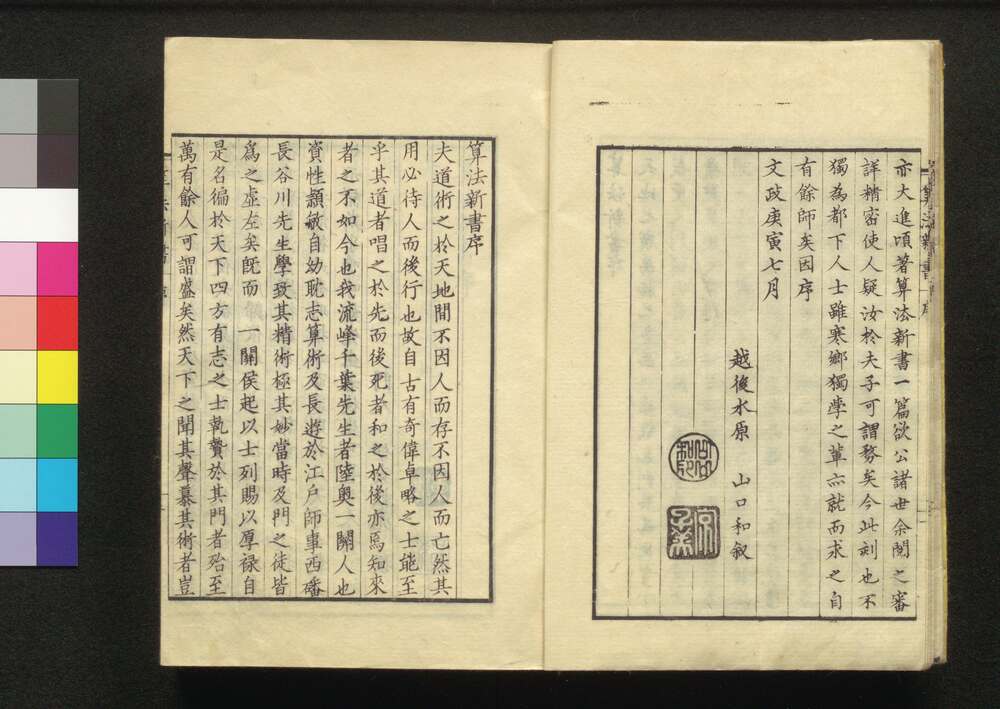 亦大進頃著算法新書一篇欲公諸世余閲之審
詳精密使人疑汝於夫子可謂務矣今此刻也不
獨為都下人士雖寒鄉獨學之輩亦就而求之自
有餘師矣因序
文政庚寅七月
越後水原　山口和叙
算法新書序
夫道術之於天地間不因人而存不因人而亡然其
用必待人而後行也故自古有奇偉卓略之士能至
乎其道者唱之於先而後死者和之於後亦焉知來
者之不如今也我流峰千葉先生者陸奥一關人也
資性頴敏自幼耽志算術及長遊於江戸師事西磻
長谷川先生學致其精術極其妙當時及門之徒皆
為之虚左矣既而　一關侯起以士列賜以厚禄自
是名徧於天下四方有志之士執贄於其門者殆至
萬有餘人可謂盛矣然天下之聞其聲慕其術者豈